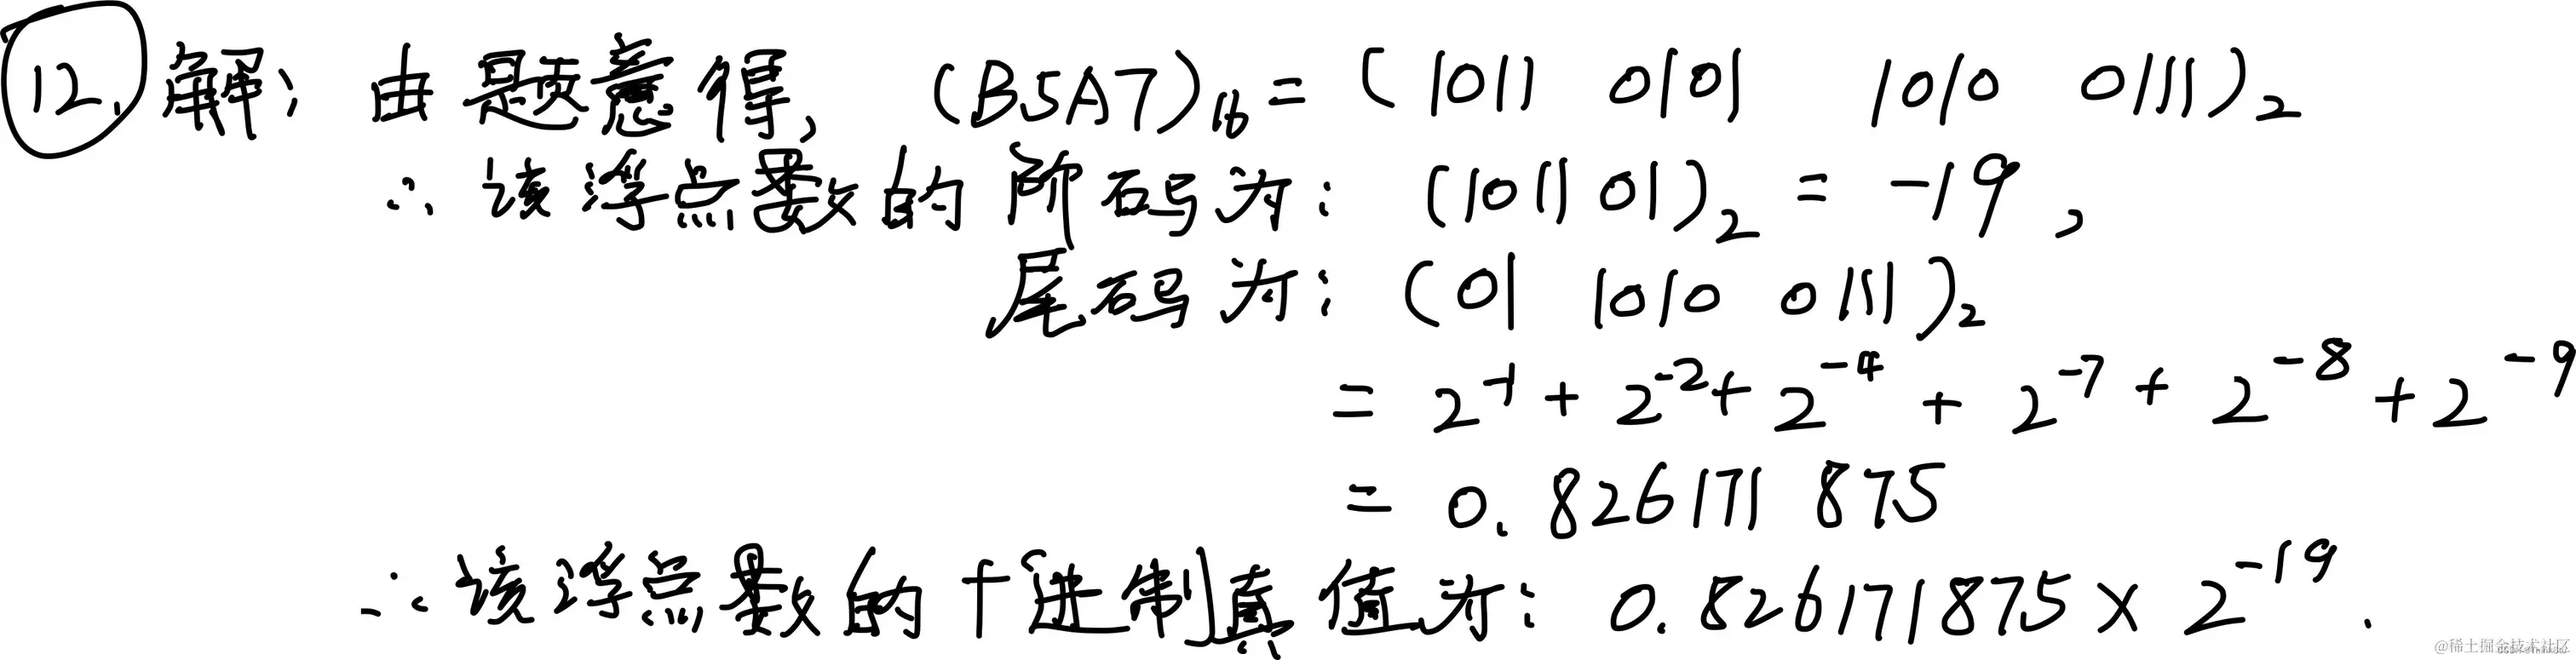 12. 解: 由题意得, (B5A7)₁₆ = (1011 0101 1010 0111)₂
∴ 该浮点数的阶码为: (101101)₂ = -19,
尾码为: (01 1010 0111)₂
= 2⁻¹ + 2⁻² + 2⁻⁴ + 2⁻⁷ + 2⁻⁸ + 2⁻⁹
= 0.826171875
∴ 该浮点数的十进制真值为: 0.826171875 × 2⁻¹⁹.
@稀土掘金技术社区